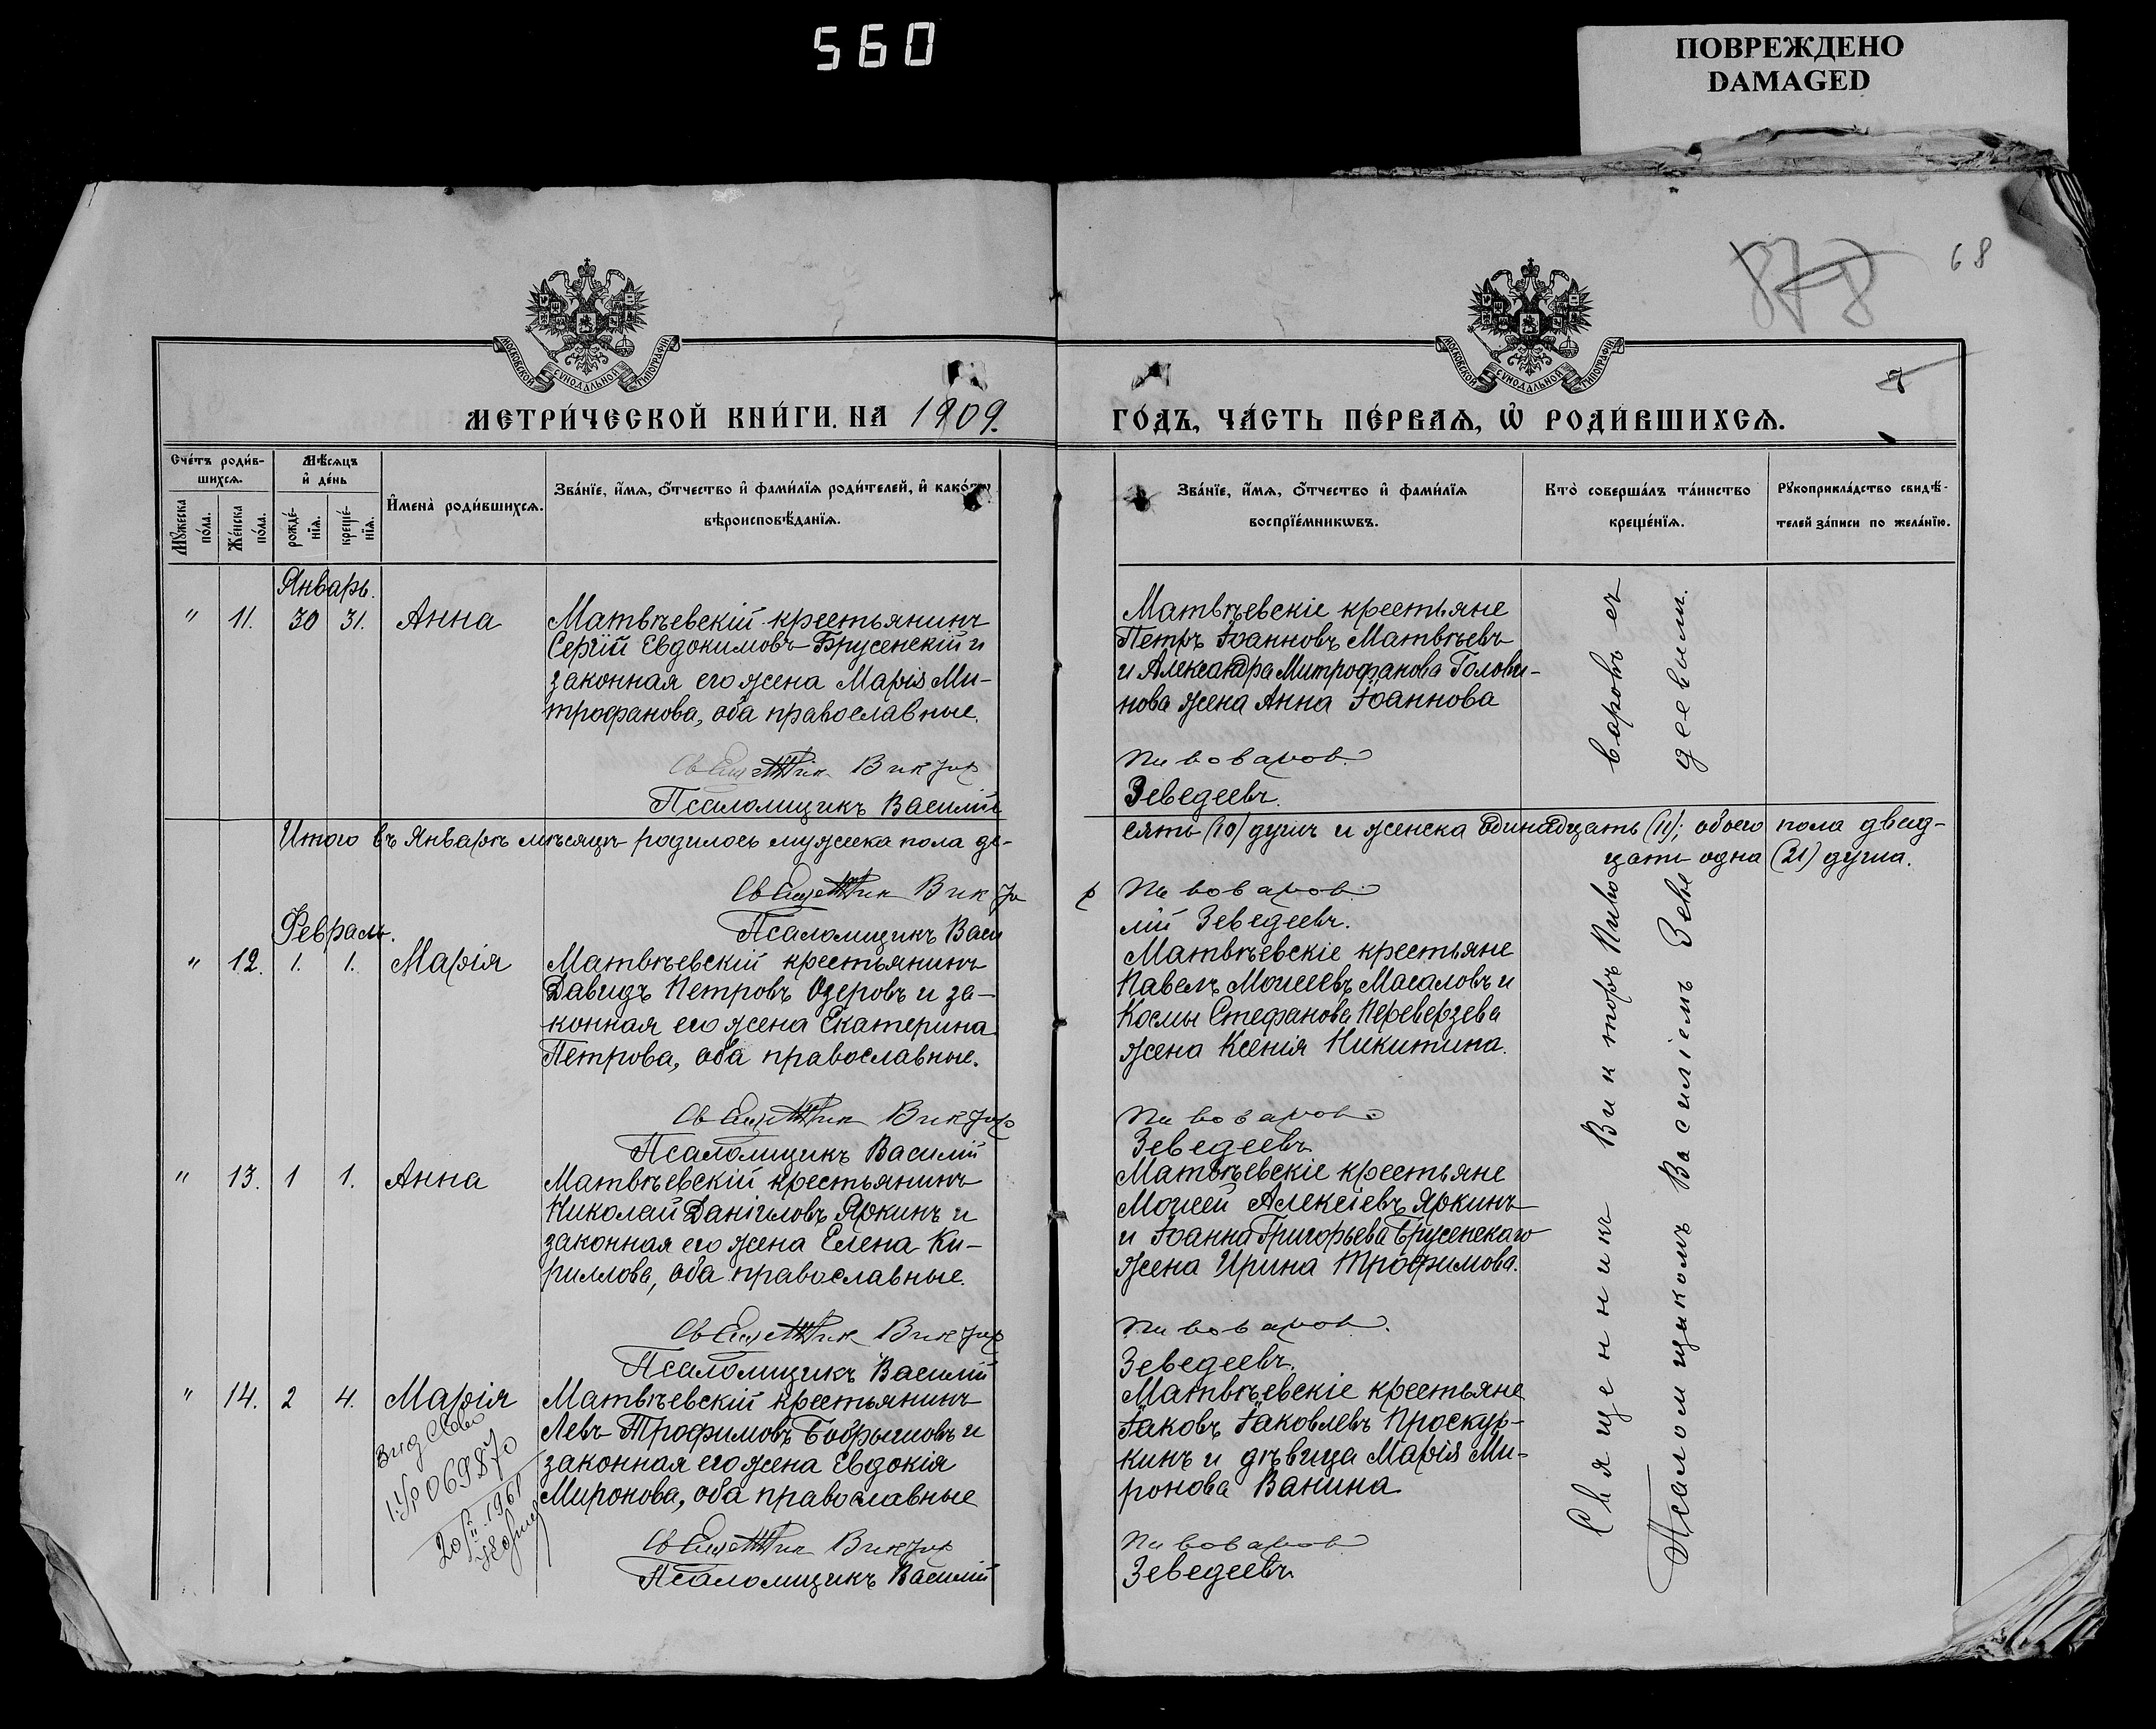 560
ПОВРЕЖДЕНО
DAMAGED
878
68
7
МОСКОВСКОЙ СѴНОДАЛЬНОЙ ТИПОГРАФІИ
МОСКОВСКОЙ СѴНОДАЛЬНОЙ ТИПОГРАФІИ
МЕТРИ́ЧЕСКОЙ КНИ́ГИ НА 1909.
ГО́ДЪ, ЧА́СТЬ ПЕ́РВАѦ, Ѡ РОДИ́ВШИХСѦ.
Сче́тъ роди́в-
шихсѧ.
Мꙋ́жеска
по́ла.
Же́нска
по́ла.
Мѣ́сѧцъ
и҆ де́нь
рожде́-
нїѧ.
креще́-
нїѧ.
И҆мена̀ роди́вшихсѧ.
Зва́нїе, и҆́мѧ, ѻ҆́тчество и҆ фами́лїѧ роди́телей, и҆ како́гѡ
вѣроисповѣ́данїѧ.
Зва́нїе, и҆́мѧ, ѻ҆́тчество и҆ фами́лїѧ
воспрїе́мникѡвъ.
Кто̀ соверша́лъ та́инство
креще́нїѧ.
Рꙋкоприкла́дство свидѣ́-
телей за́писи по жела́нїю.
Январь.
" 11. 30 31. Анна
Матвѣевскій крестьянинъ
Сергій Евдокимовъ Брусенскій и
законная его жена Марія Ми-
трофанова, оба православные.
Священник Виктор
Псаломщикъ Василій
Матвѣевскіе крестьяне
Петръ Іоанновъ Матвѣевъ
и Александра Митрофанова Голови-
нова жена Анна Іоаннова
Пивоваров.
Зеведеевъ.
Итого въ Январѣ мѣсяцѣ родилось мужеска пола де-
сять (10) душъ и женска одинадцать (11); обоего пола двад-
цать одна (21) душа.
Священник Викто
р Пивоваров.
Псаломщикъ Васи
лій Зеведеевъ.
Февраль.
" 12. 1. 1. Марія
Матвѣевскій крестьянинъ
Давидъ Петровъ Озеровъ и за-
конная его жена Екатерина
Петрова, оба православные.
Священник Виктор
Псаломщикъ Василій
Матвѣевскіе крестьяне
Павелъ Моисеевъ Масаловъ и
Космы Стефанова Переверзева
жена Ксенія Никитина.
Пивоваров.
Зеведеевъ
" 13. 1 1. Анна
Матвѣевскій крестьянинъ
Николай Даніиловъ Яркинъ и
законная его жена Елена Ки-
риллова, оба православные.
Священник Виктор
Псаломщикъ Василій
Матвѣевскіе крестьяне
Моисей Алексіевъ Яркинъ
и Іоанна Григорьева Брусенскаго
жена Ирина Трофимова.
Пивоваров.
Зеведеевъ.
" 14. 2 4. Марія
Матвѣевскій крестьянинъ
Левъ Трофимовъ Бобрышовъ и
законная его жена Евдокія
Миронова, оба православные
Священник Виктор
Псаломщикъ Василій
Матвѣевскіе крестьяне
Іаковъ Іаковлевъ Проскур-
кинъ и дѣвица Марія Ми-
ронова Ванина
Пивоваров
Зеведеевъ.
069870
20/II-1961
Священникъ Викторъ Пивоваровъ съ
Псаломщикомъ Василіемъ Зеведеевымъ.